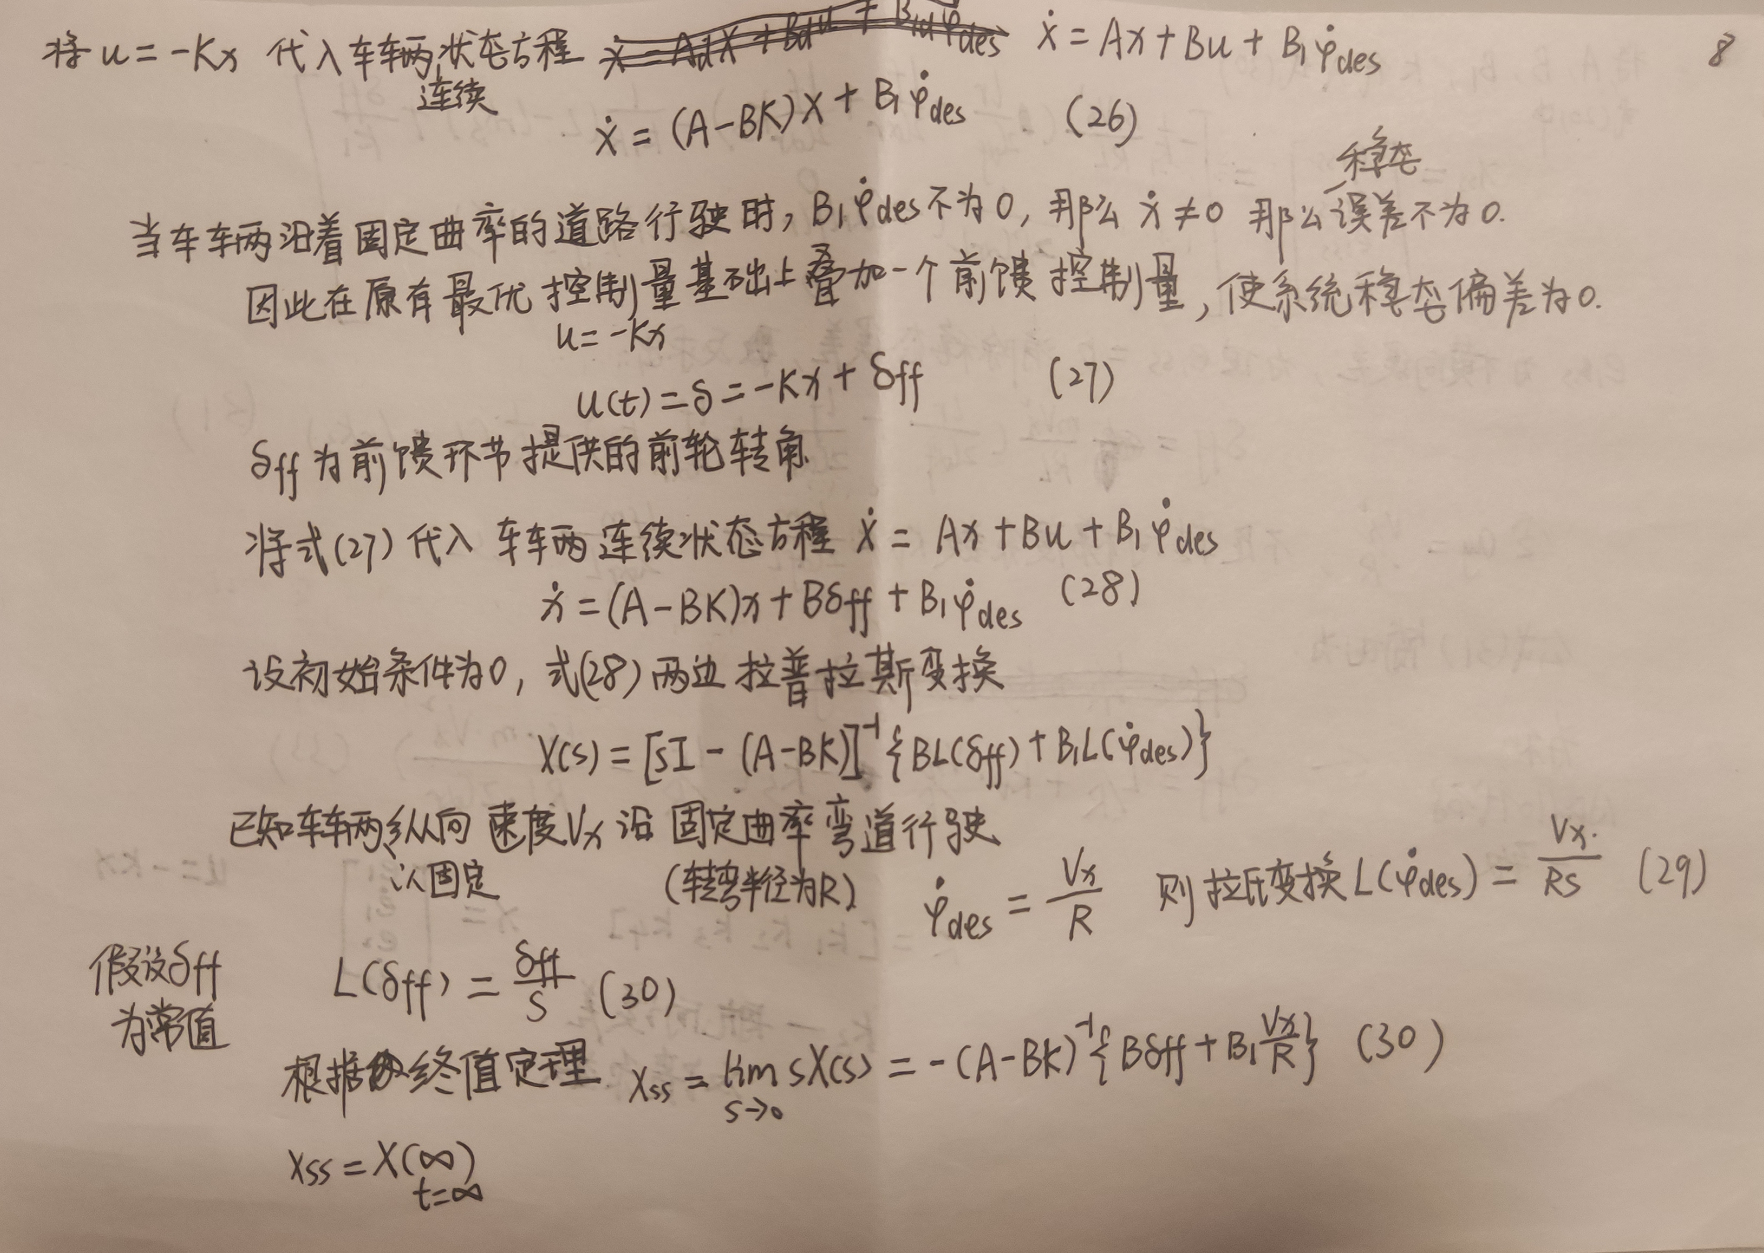 将 u = -Kx 代入车辆连续状态方程 ẋ = Ax + Bu + B₁φ̇des
8
ẋ = (A-BK)x + B₁φ̇des (26)
当车辆沿着固定曲率的道路行驶时, B₁φ̇des不为0, 那么 ẋ≠0 那么稳态误差不为0.
因此在原有最优控制量基础上叠加一个前馈控制量, 使系统稳态偏差为0.
u = -Kx
u(t) = δ = -Kx + δff (27)
δff 为前馈环节提供的前轮转角
将式(27)代入 车辆连续状态方程 ẋ = Ax + Bu + B₁φ̇des
ẋ = (A-BK)x + Bδff + B₁φ̇des (28)
设初始条件为0, 式(28)两边拉普拉斯变换
X(s) = [sI - (A-BK)]⁻¹{BL(δff) + B₁L(φ̇des)}
已知车辆以固定纵向速度Vx 沿固定曲率弯道行驶
(转弯半径为R) φ̇des = Vx/R 则拉氏变换 L(φ̇des) = Vx/Rs (29)
假设δff为常值 L(δff) = δff/s (30)
根据终值定理 xss = lim s→0 sX(s) = -(A-BK)⁻¹{Bδff + B₁Vx/R} (30)
xss = X(∞)
t=∞